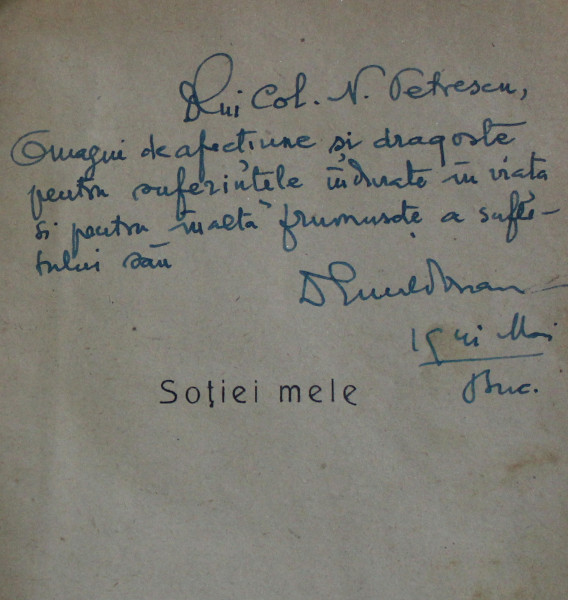 Dlui Col. N. Petrescu,
Omagiu de afecțiune și dragoste
pentru suferințele îndurate în viata
si pentru înalta frumusețe a sufle-
tului său
1941 Mai
Buc.
Soției mele